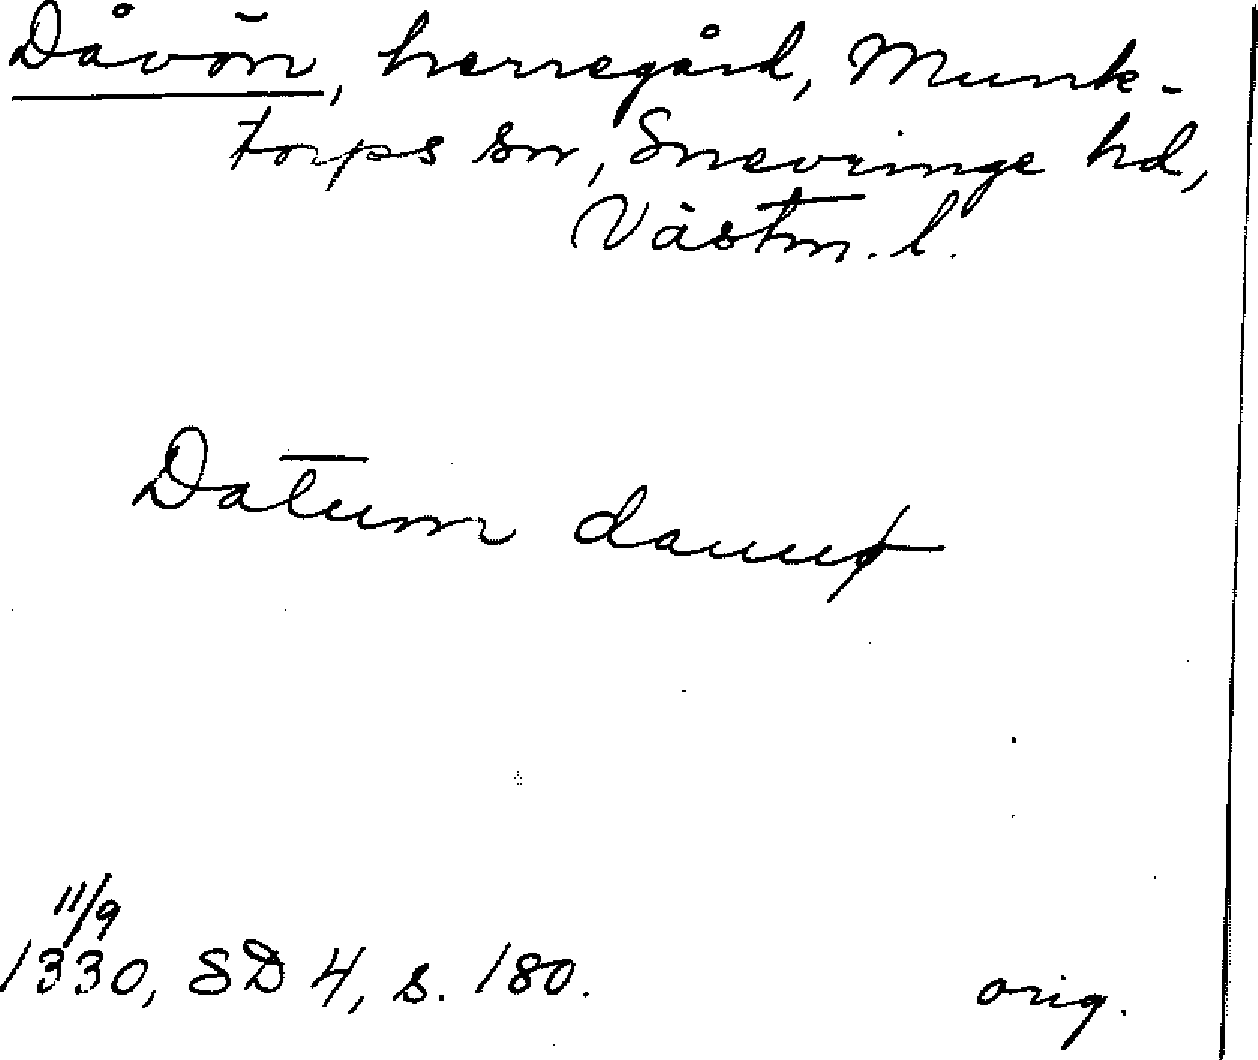 Dåvön, herregård, Munk-
torps sn, Snevringe hd,
Västm. l.
Datum dauuø
11/9
1330, SD 4, s. 180. orig.